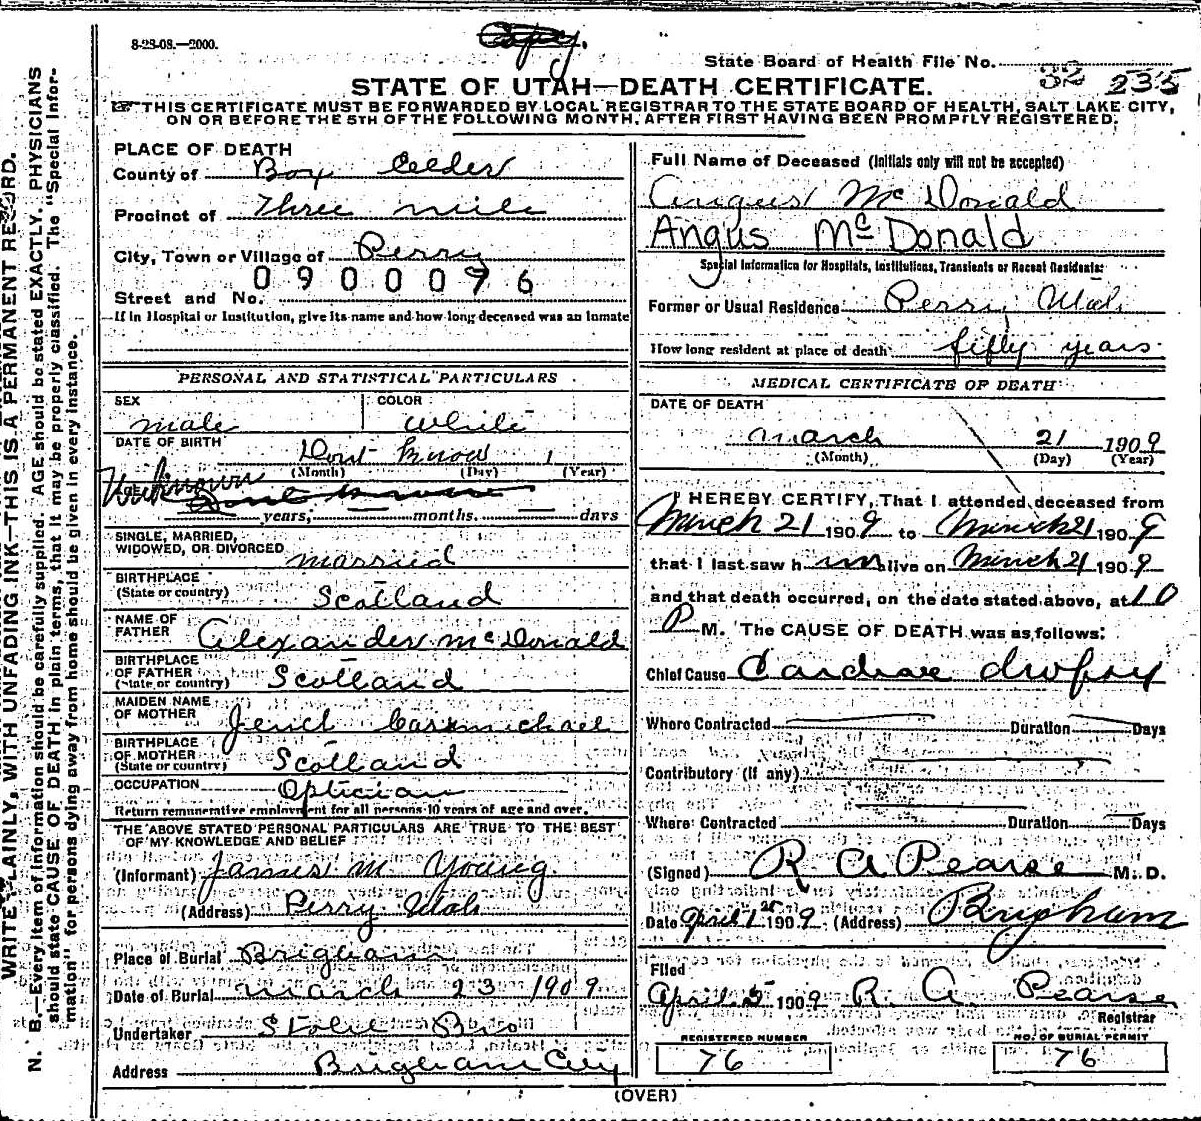 8-28-08.—2000.
Copy.
State Board of Health File No. 32 235
STATE OF UTAH—DEATH CERTIFICATE.
☞THIS CERTIFICATE MUST BE FORWARDED BY LOCAL REGISTRAR TO THE STATE BOARD OF HEALTH, SALT LAKE CITY,
ON OR BEFORE THE 5TH OF THE FOLLOWING MONTH, AFTER FIRST HAVING BEEN PROMPTLY REGISTERED.
PLACE OF DEATH
County of Box Elder
Precinct of Three mile
City, Town or Village of Perry
0900096
Street and No.
If in Hospital or Institution, give its name and how long deceased was an inmate
PERSONAL AND STATISTICAL PARTICULARS
SEX COLOR
male White
DATE OF BIRTH Dont know 1
(Month) (Day) (Year)
Unknown
years, months. days
SINGLE, MARRIED,
WIDOWED, OR DIVORCED married
BIRTHPLACE
(State or country) Scotland
NAME OF
FATHER Alexander McDonald
BIRTHPLACE
OF FATHER
(State or country) Scotland
MAIDEN NAME
OF MOTHER Carmichael
BIRTHPLACE
OF MOTHER
(State or country) Scotland
OCCUPATION Optician
Return remunerative employment for all persons 10 years of age and over.
THE ABOVE STATED PERSONAL PARTICULARS ARE TRUE TO THE BEST
OF MY KNOWLEDGE AND BELIEF
(Informant) James M. Young.
(Address) Perry Utah
Place of Burial Brigham
Date of Burial March 23 1909.
Undertaker Bro
Address Brigham City
Full Name of Deceased (Initials only will not be accepted)
Angus McDonald
Angus McDonald
Special Information for Hospitals, Institutions, Transients or Recent Residents:
Former or Usual Residence Perry Utah
How long resident at place of death fifty years
MEDICAL CERTIFICATE OF DEATH
DATE OF DEATH
March 21 1909
(Month) (Day) (Year)
I HEREBY CERTIFY, That I attended deceased from
March 21 1909 to March 21 1909
that I last saw h im alive on March 21 1909
and that death occurred, on the date stated above, at 10
P M. The CAUSE OF DEATH was as follows:
Chief Cause Cardiac dropsy
Where Contracted Duration Days
Contributory (If any)
Where Contracted Duration Days
(Signed) R A Pearse M. D.
Date April 1st 1909. (Address) Brigham
Filed
April 5 1909 R. A. Pearse
Registrar
REGISTERED NUMBER NO. OF BURIAL PERMIT
76 76
(OVER)
WRITE PLAINLY, WITH UNFADING INK—THIS IS A PERMANENT RECORD.
N. B.—Every item of information should be carefully supplied. AGE should be stated EXACTLY. PHYSICIANS
should state CAUSE OF DEATH in plain terms, that it may be properly classified. The "Special Infor-
mation" for persons dying away from home should be given in every instance.